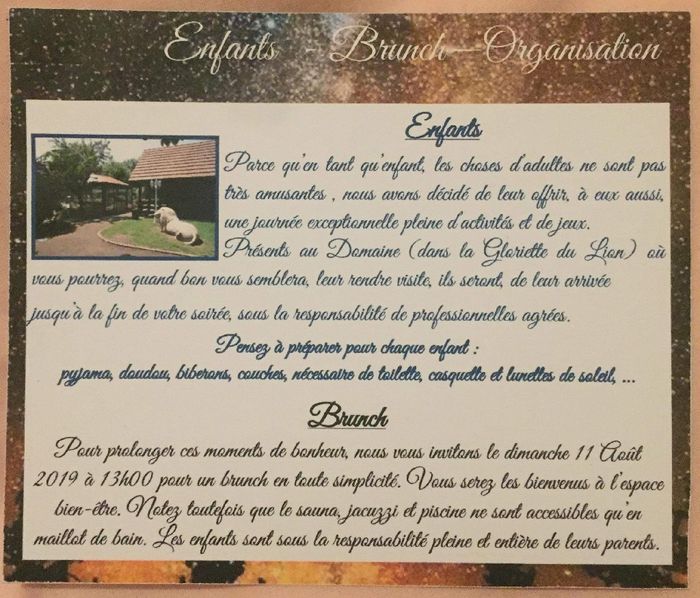 Enfants - Brunch - Organisation
Enfants
Parce qu'en tant qu'enfant, les choses d'adultes ne sont pas
très amusantes , nous avons décidé de leur offrir, à eux aussi,
une journée exceptionnelle pleine d'activités et de jeux.
Présents au Domaine (dans la Gloriette du Lion) où
vous pourrez, quand bon vous semblera, leur rendre visite, ils seront, de leur arrivée
jusqu'à la fin de votre soirée, sous la responsabilité de professionnelles agrées.
Pensez à préparer pour chaque enfant :
pyjama, doudou, biberons, couches, nécessaire de toilette, casquette et lunettes de soleil, ...
Brunch
Pour prolonger ces moments de bonheur, nous vous invitons le dimanche 11 Août
2019 à 13h00 pour un brunch en toute simplicité. Vous serez les bienvenus à l'espace
bien-être. Notez toutefois que le sauna, jacuzzi et piscine ne sont accessibles qu'en
maillot de bain. Les enfants sont sous la responsabilité pleine et entière de leurs parents.